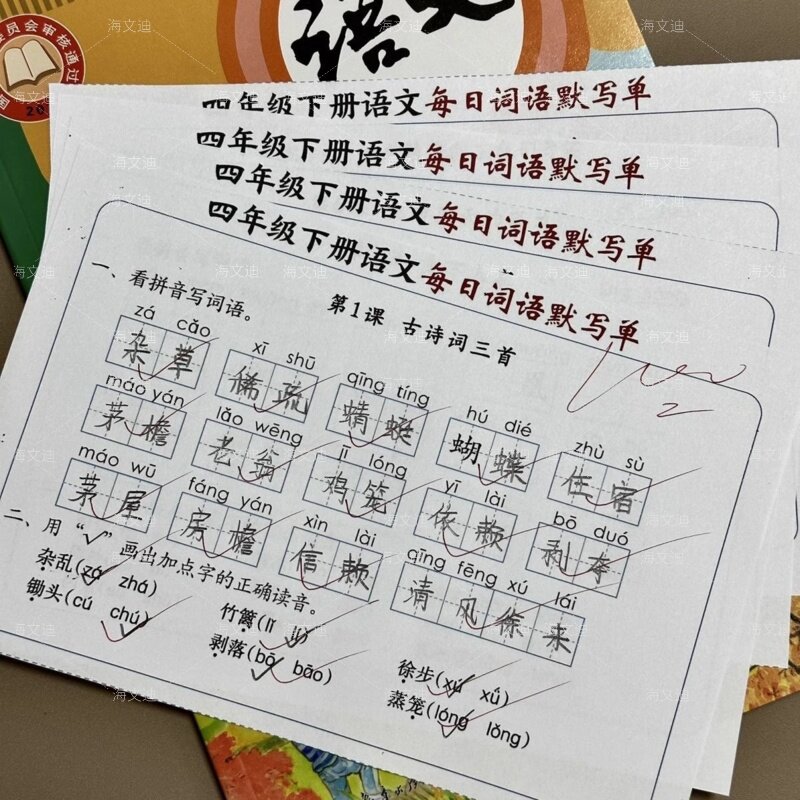 语文
委员会审核通过
四年级下册语文每日词语默写单
四年级下册语文每日词语默写单
四年级下册语文每日词语默写单
四年级下册语文每日词语默写单
第1课 古诗词三首
一、看拼音写词语。
zá cǎo xī shū qīng tíng hú dié zhù sù
杂草 稀疏 蜻蜓 蝴蝶 住宿
máo yán lǎo wēng jī lóng yī lài bō duó
茅檐 老翁 鸡笼 依赖 剥夺
máo wū fáng yán xìn lài qīng fēng xú lái
茅屋 房檐 信赖 清风徐来
二、用“√”画出加点字的正确读音。
杂乱(zá zhá) 竹篱(lǐ lí) 徐步(xú xǘ)
锄头(cú chú) 剥落(bō bāo) 蒸笼(lóng lǒng)
海文迪